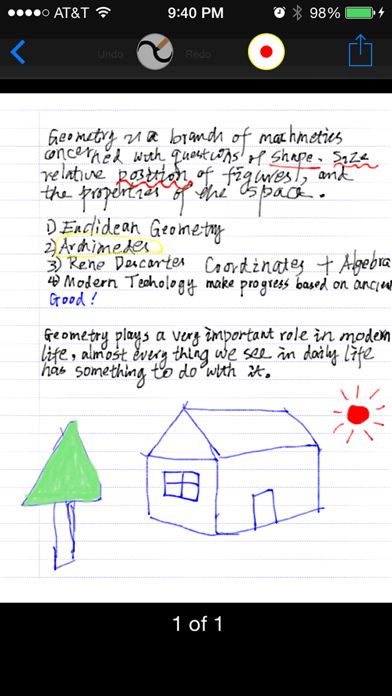 AT&T 9:40 PM 98%
Undo Redo
Geometry is a branch of mathmetics
concerned with questions of shape. Size
relative position of figures, and
the properties of the space.
1) Euclidean Geometry
2) Archimedes
3) Rene Descartes Coordinates + Algebra
4) Modern Techology make progress based on ancien
Good!
Geometry plays a very important role in modern
life, almost every thing we see in daily life
has something to do with it.
1 of 1